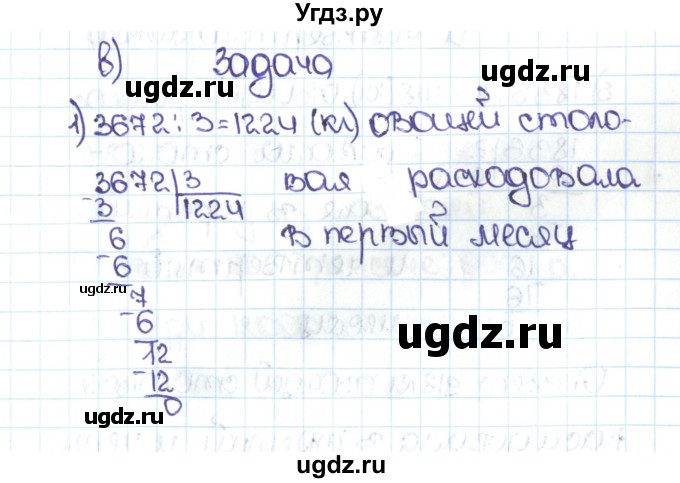 Угдз.ру
в) Задача
1) 3672 : 3 = 1224 (кг) овощей столо-
3672 | 3 вая расходовала
3 1224 в первый месяц
6
-6
7
-6
12
-12
0
ugdz.ru
ugdz.ru
ugdz.ru
ugdz.ru
ugdz.ru
ugdz.ru
ugdz.ru